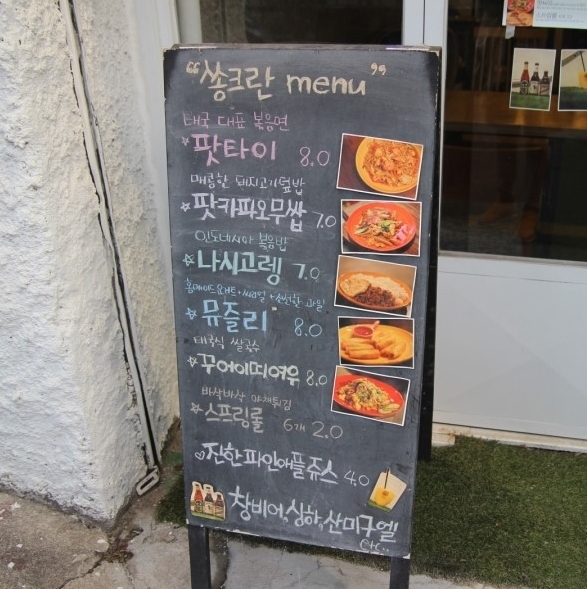 “쏭크란 menu”
태국 대표 볶음면
팟타이 8.0
매콤한 돼지고기덮밥
팟카파오무쌉 7.0
인도네시아 볶음밥
나시고렝 7.0
홈메이드요거트+씨리얼+신선한 과일
뮤즐리 8.0
태국식 쌀국수
꾸어이띠여우 8.0
바삭바삭 야채튀김
스프링롤 6개 2.0
진한파인애플쥬스 4.0
창비어, 싱하, 산미구엘
etc..